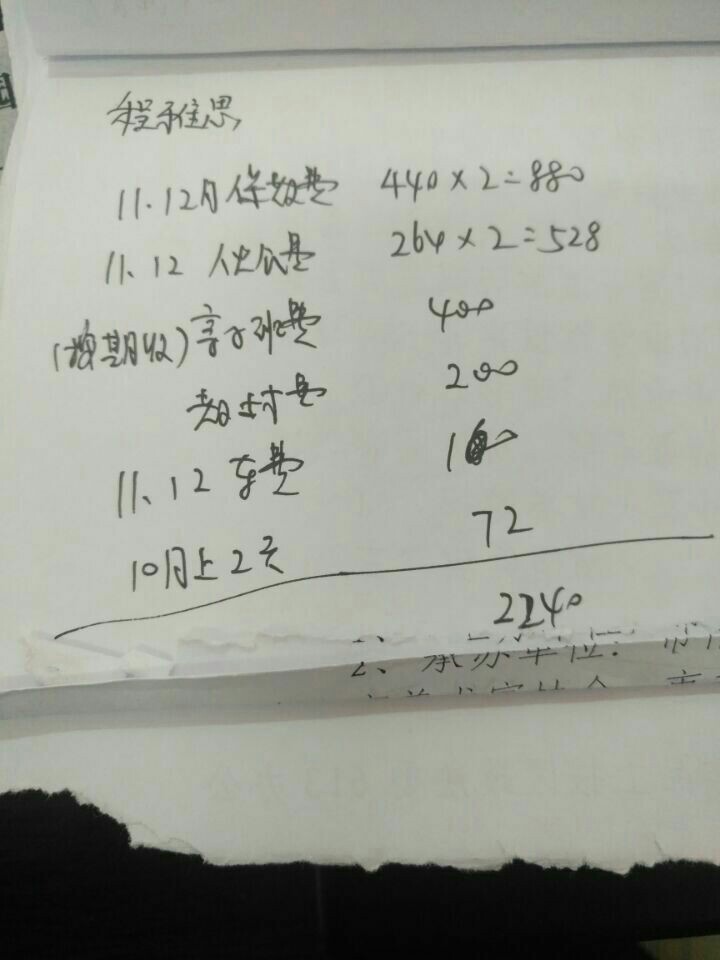 程雅思
11.12月保教费 440×2=880
11、12 伙食费 264×2=528
(按期收)亲子班费 400
教材费 200
11、12 车费 160
10月上2天 72
2240
2、承办单位：